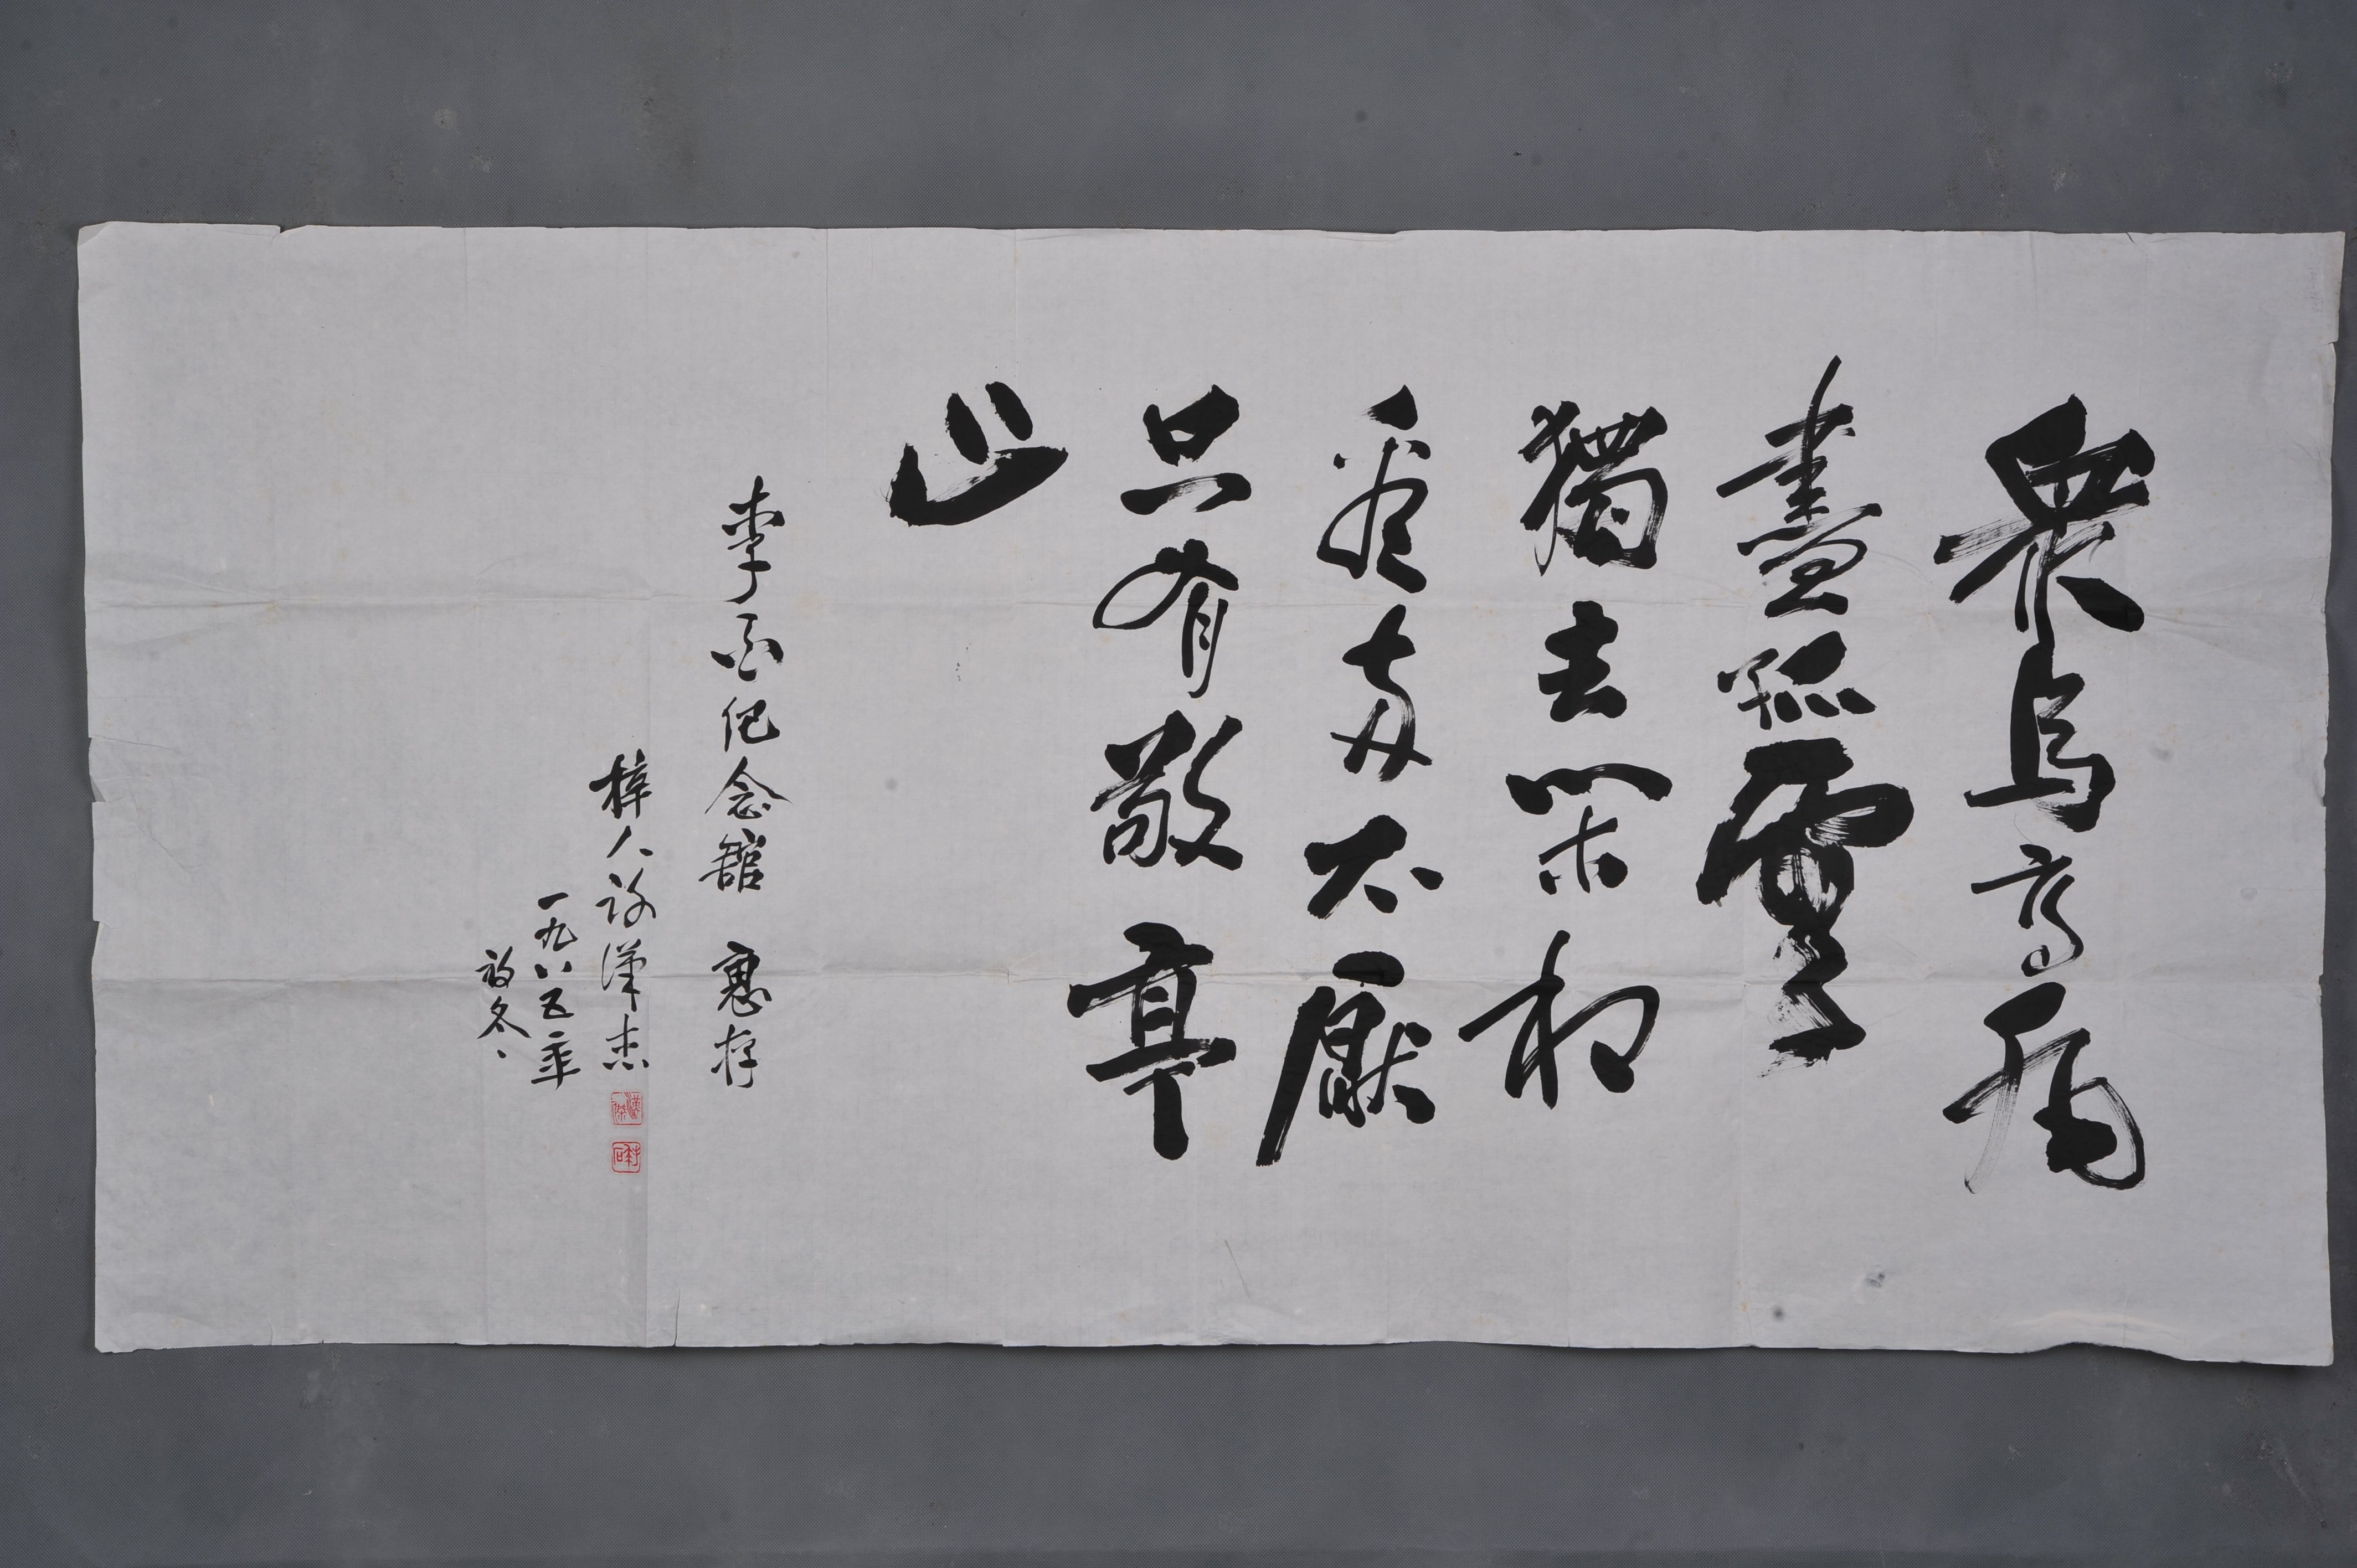 眾鳥高飛
盡孤雲
獨去閑相
看兩不厭
只有敬亭
山
李白纪念館 惠存
梓人許漢杰
一九八五年
初冬